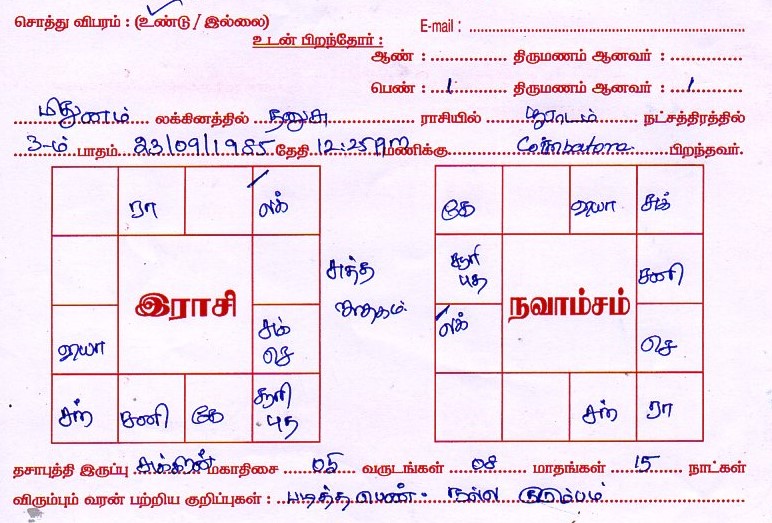 சொத்து விபரம் : (உண்டு / இல்லை) E-mail :
உடன் பிறந்தோர் :
ஆண் : திருமணம் ஆனவர் :
பெண் : 1 திருமணம் ஆனவர் : 1
மிதுனம் லக்கினத்தில் தனுசு ராசியில் பூராடம் நட்சத்திரத்தில்
3-ம் பாதம் 23/09/1985 தேதி 12:25 PM மணிக்கு Coimbatore பிறந்தவர்.
ரா லக் கே வியா சுக்
சூரி புத சனி
சுத்த ஜாதகம்
இராசி நவாம்சம்
வியா சுக் செ லக் செ
சந் சனி கே சூரி புத சந் ரா
தசாபுத்தி இருப்பு சுக்கிரன் மகாதிசை 05 வருடங்கள் 08 மாதங்கள் 15 நாட்கள்
விரும்பும் வரன் பற்றிய குறிப்புகள் : படித்த பெண். நல்ல குடும்பம்